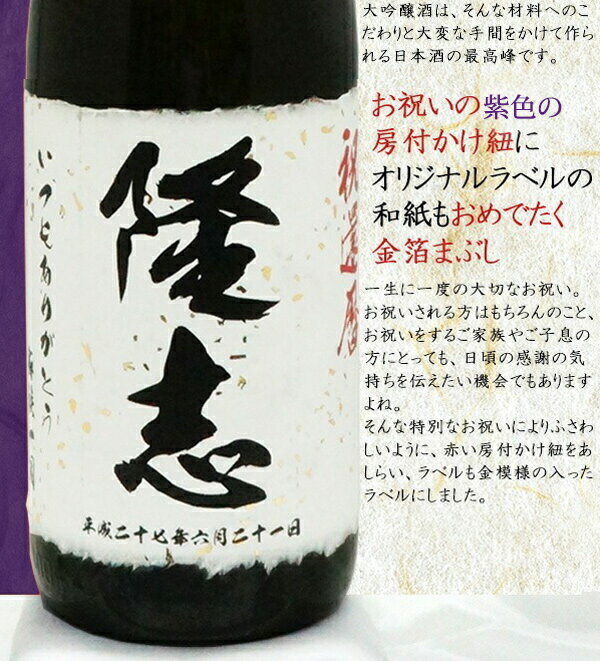 大吟醸酒は、そんな材料へのこ
だわりと大変な手間をかけて作ら
れる日本酒の最高峰です。
お祝いの紫色の
房付かけ紐に
オリジナルラベルの
和紙もおめでたく
金箔まぶし
一生に一度の大切なお祝い。
お祝いされる方はもちろんのこと、
お祝いをするご家族やご子息の
方にとっても、日頃の感謝の気
持ちを伝えたい機会でもあります
よね。
そんな特別なお祝いによりふさわ
しいように、赤い房付かけ紐をあ
しらい、ラベルも金模様の入った
ラベルにしました。
祝還暦
隆志
いつもありがとう
平成二十七年六月二十一日